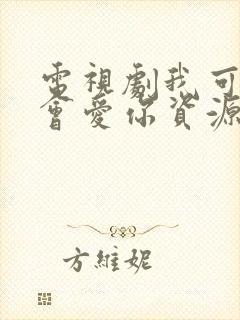 電視劇我可
會愛你資源
方維妮